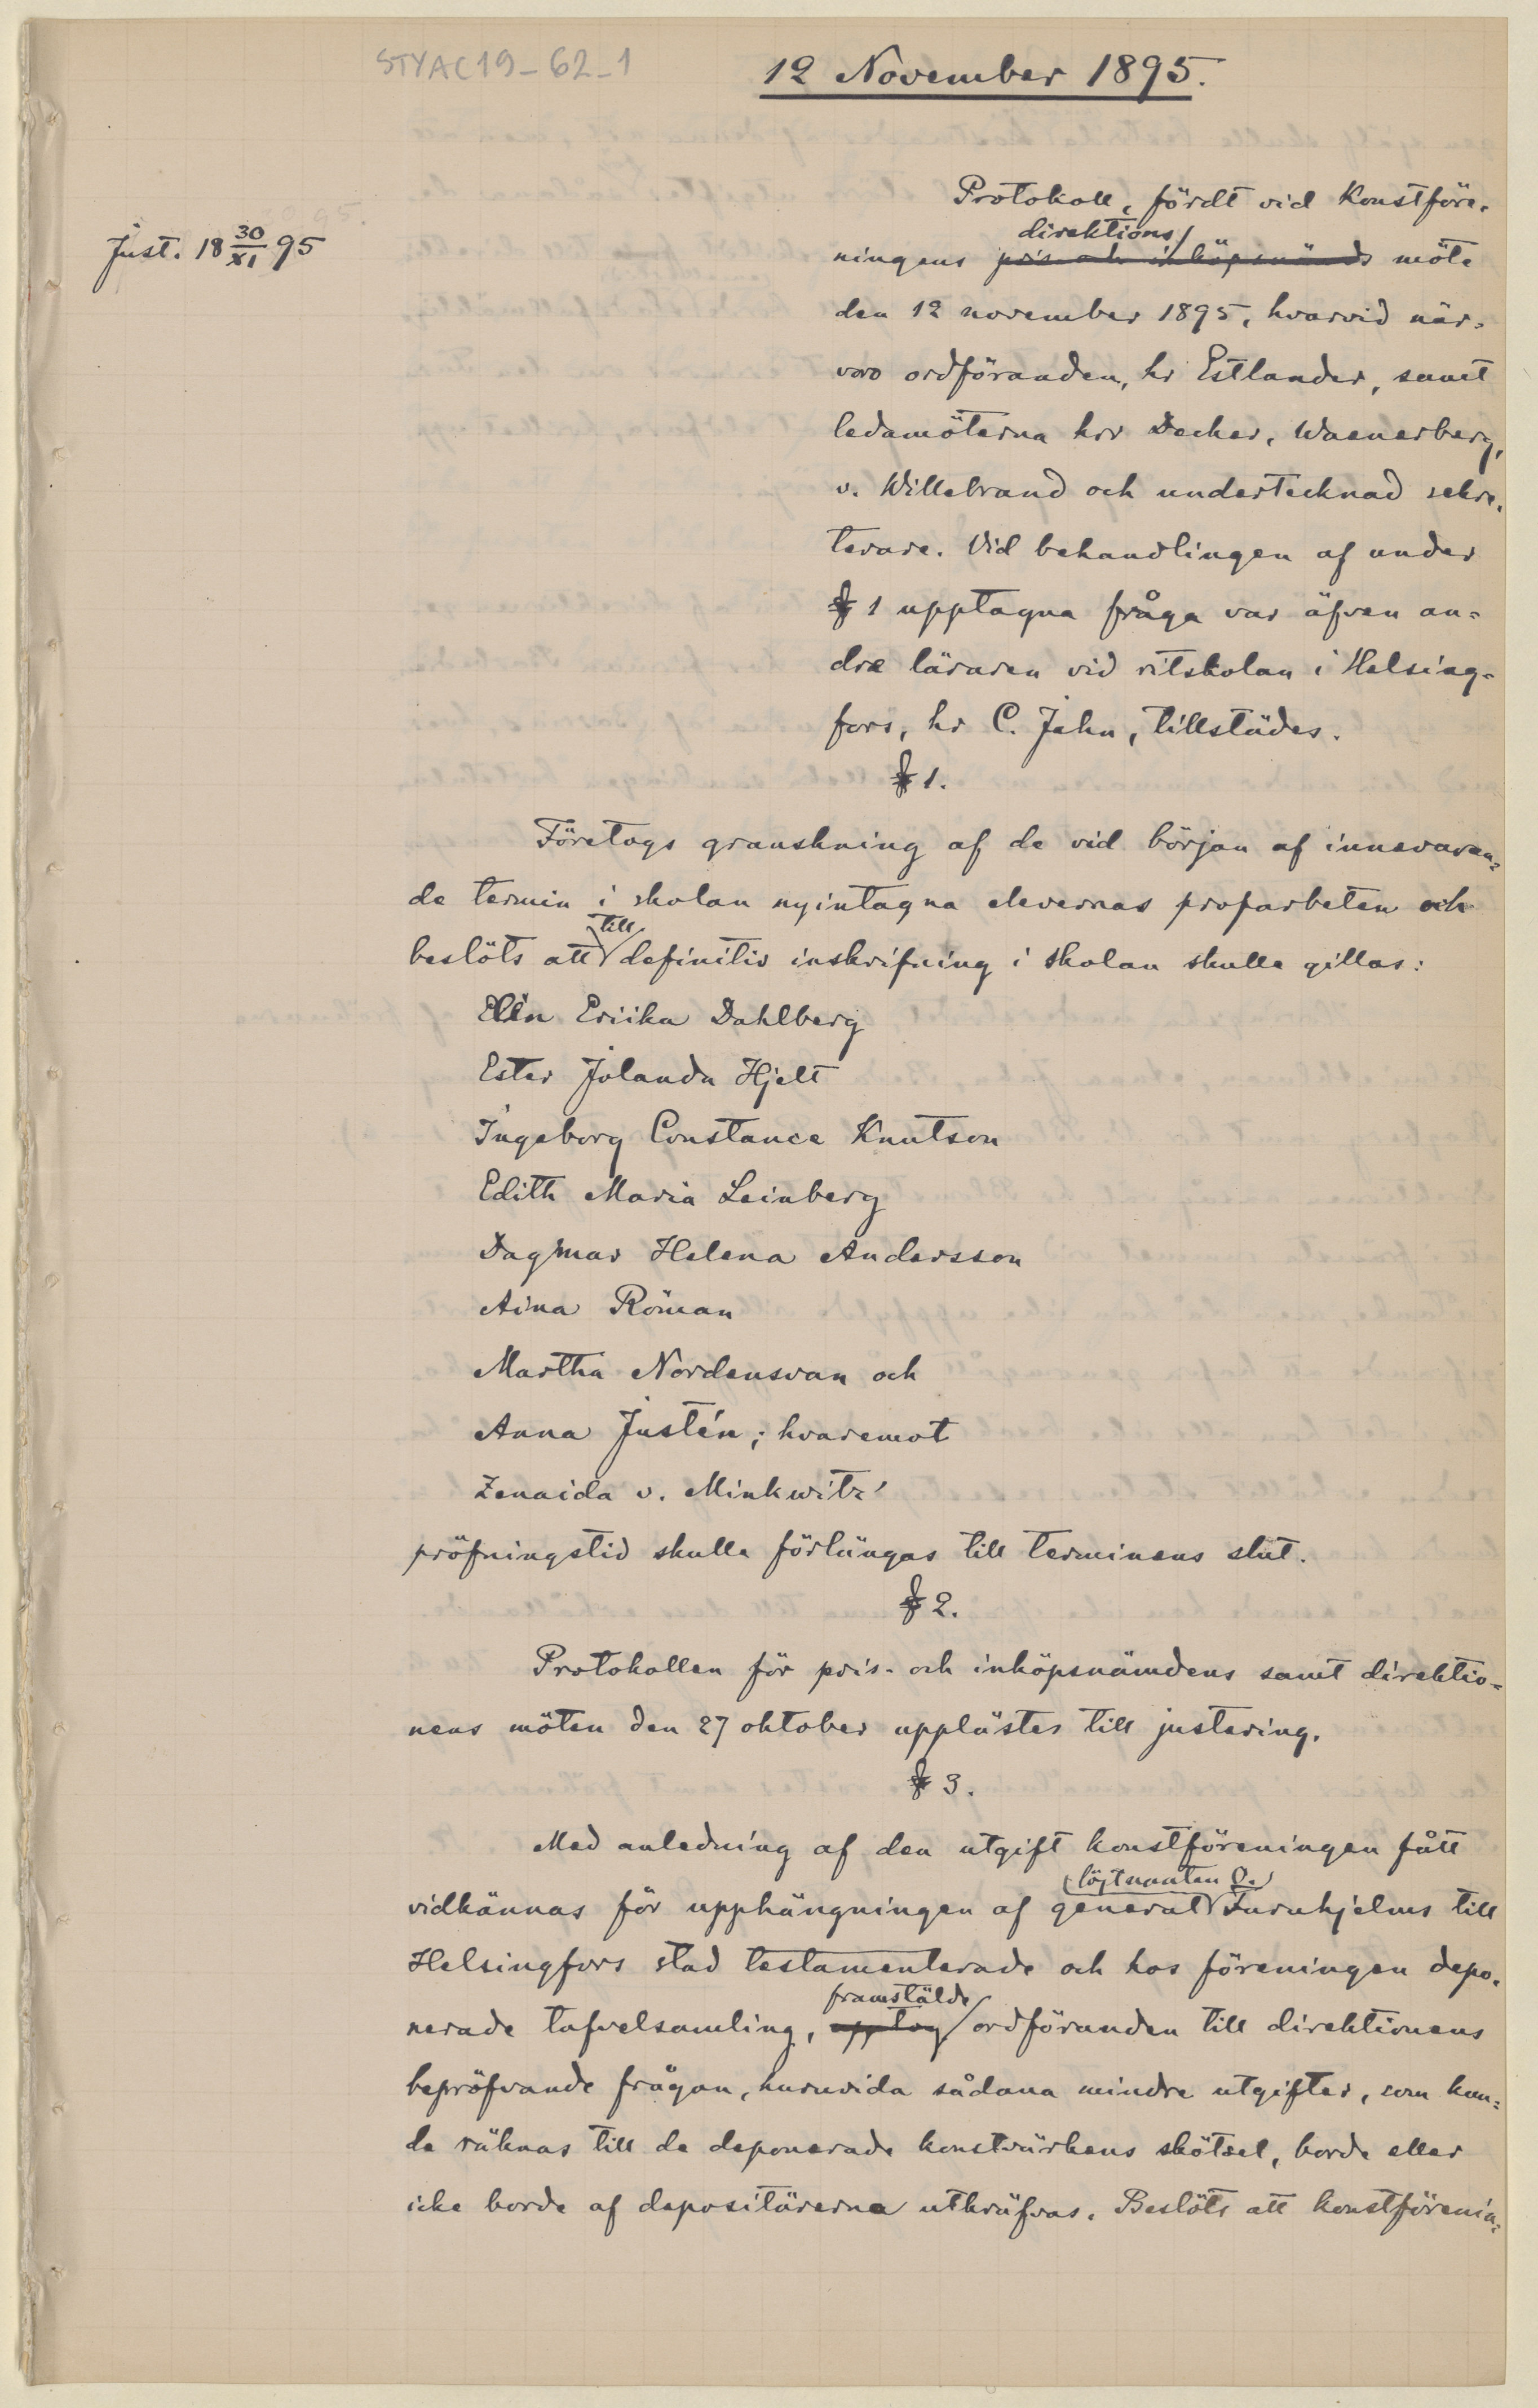 STYAC19-62-1
12 November 1895.
Just. 18 30/XI 95
Protokoll, fördt vid Konstföre-
direktions
ningens pris- och inköpsnämnds möte
den 12 november 1895, hvarvid när-
voro ordföranden, hr Estlander, samt
ledamöterna hrr Decker, Waenerberg,
v. Willebrand och undertecknad sekre-
terare. Vid behandlingen af under
§ 1 upptagna fråga var äfven an-
dre läraren vid ritskolan i Helsing-
fors, hr C. Jahn, tillstädes.
§ 1.
Företogs granskning af de vid början af innevaran-
de termin i skolan nyintagna elevernas profarbeten och
till
beslöts att definitiv inskrifning i skolan skulle gillas:
Elin Eriika Dahlberg
Ester Jolanda Hjelt
Ingeborg Constance Knutson
Edith Maria Leinberg
Dagmar Helena Andersson
Aina Röman
Martha Nordensvan och
Anna Justén; hvaremot
Zenaida v. Minkwitz'
pröfningstid skulle förlängas till terminens slut.
§ 2.
Protokollen för pris- och inköpsnämdens samt direktio-
nens möten den 27 oktober upplästes till justering.
§ 3.
Med anledning af den utgift konstföreningen fått
löjtnanten O.
vidkännas för upphängningen af general Furuhjelms till
Helsingfors stad testamenterade och hos föreningen depo-
framstälde
nerade tafvelsamling, upptog ordföranden till direktionens
bepröfvande frågan, huruvida sådana mindre utgifter, som kun-
de räknas till de deponerade konstvärkens skötsel, borde eller
icke borde af depositärerna utkräfvas. Beslöts att konstförenin-